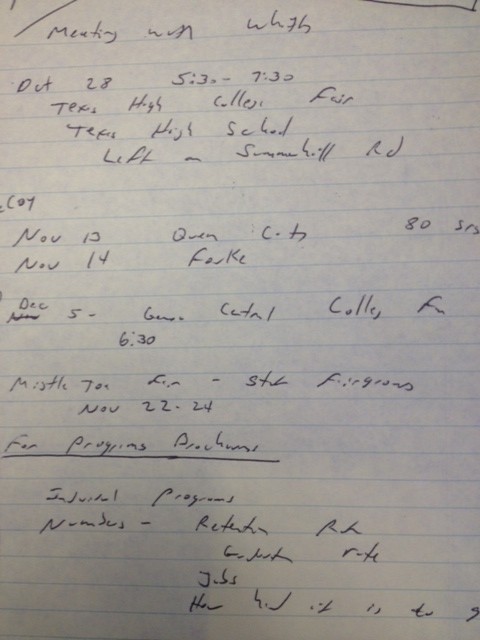 Meeting with
Oct 28 5:30 - 7:30
Texas High College Fair
Texas High School
Left on Summerhill Rd
Nov 13 80 srs
Nov 14 Forke
Dec 5 - Central College
6:30
Mistle Toe Fair - State Fairgrouns
Nov 22-24
For Programs Brochures
Individual Programs
Numbers - Retention Rate
Graduation rate
Jobs
How hard it is to g